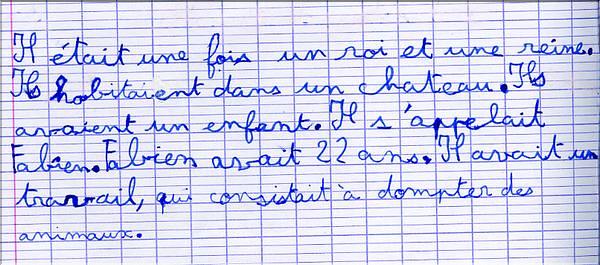 Il était une fois un roi et une reine.
Ils habitaient dans un chateau. Ils
avaient un enfant. Il s'appelait
Fabien. Fabien avait 22 ans. Il avait un
travail, qui consistait à dompter des
animaux.